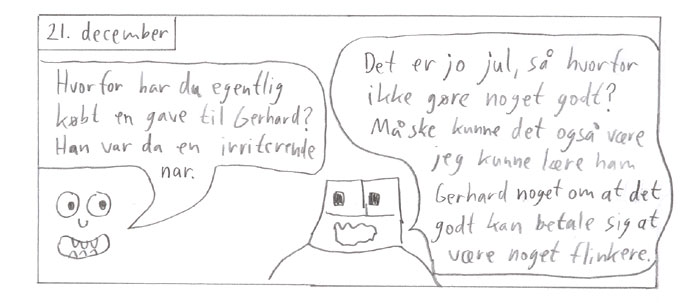 21. december
Hvorfor har du egentlig
købt en gave til Gerhard?
Han var da en irriterende
nar.
Det er jo jul, så hvorfor
ikke gøre noget godt?
Måske kunne det også være
jeg kunne lære ham
Gerhard noget om at det
godt kan betale sig at
være noget flinkere.